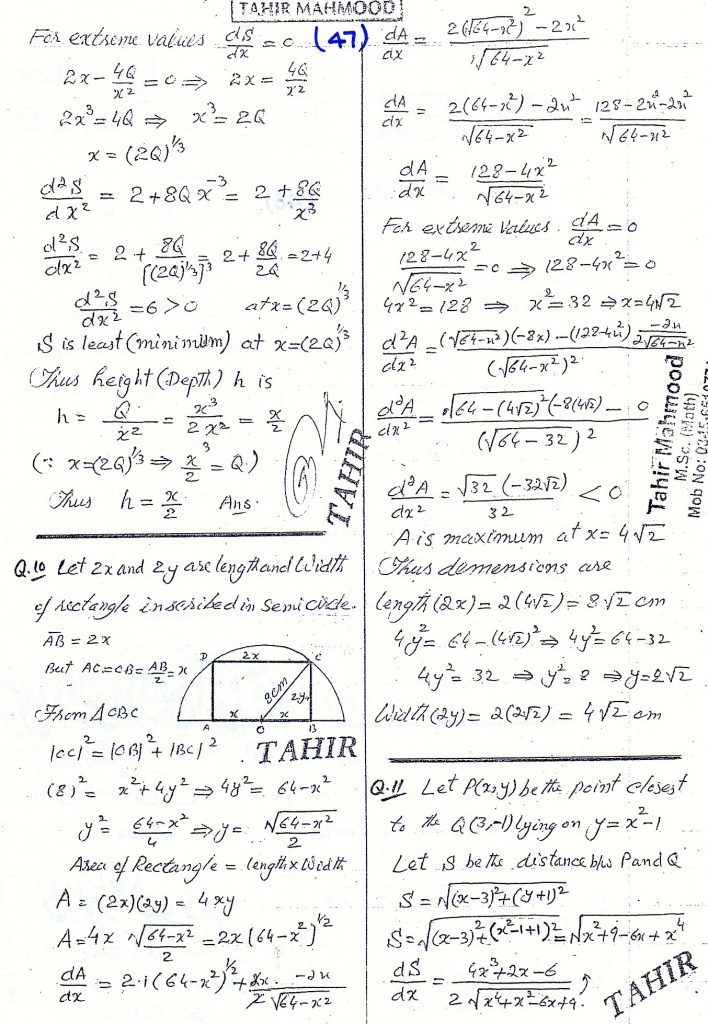 TAHIR MAHMOOD
(47)
For extreme values dS/dx = 0
2x - 4Q/x² = 0 ⇒ 2x = 4Q/x²
2x³ = 4Q ⇒ x³ = 2Q
x = (2Q)^1/3
d²S/dx² = 2 + 8Q x⁻³ = 2 + 8Q/x³
d²S/dx² = 2 + 8Q/[(2Q)^1/3]³ = 2 + 8Q/2Q = 2+4
d²S/dx² = 6 > 0 at x = (2Q)^1/3
S is least (minimum) at x = (2Q)^1/3
Thus height (Depth) h is
h = Q/x² = x³/2x² = x/2
(∵ x = (2Q)^1/3 ⇒ x³/2 = Q.)
Thus h = x/2 Ans.
TAHIR
Q.10 Let 2x and 2y are length and Width
of rectangle inscribed in Semi circle.
AB = 2x
But AC = CB = AB/2 = x
D 2x C
8cm 2y
A x O x B
From ΔOBC
|OC|² = |OB|² + |BC|²
TAHIR
(8)² = x² + 4y² ⇒ 4y² = 64 - x²
y² = 64-x²/4 ⇒ y = √64-x²/2
Area of Rectangle = length x Width
A = (2x)(2y) = 4xy
A = 4x √64-x²/2 = 2x(64-x²)^1/2
dA/dx = 2·1(64-x²)^1/2 + 2x/2 · -2x/√64-x²
dA/dx = 2(√64-x²)² - 2x²/√64-x²
dA/dx = 2(64-x²) - 2x²/√64-x² = 128-2x²-2x²/√64-x²
dA/dx = 128-4x²/√64-x²
For extreme Values. dA/dx = 0
128-4x²/√64-x² = 0 ⇒ 128-4x² = 0
4x² = 128 ⇒ x² = 32 ⇒ x = 4√2
d²A/dx² = (√64-x²)(-8x) - (128-4x²) -2x/2√64-x²/(√64-x²)²
d²A/dx² = √64-(4√2)² (-8(4√2) - 0/(√64-32)²
d²A/dx² = √32 (-32√2)/32 < 0
A is maximum at x = 4√2
Tahir Mahmood
M.Sc. (Math)
Mob No:
Thus demensions are
length (2x) = 2(4√2) = 8√2 cm
4y² = 64 - (4√2)² ⇒ 4y² = 64-32
4y² = 32 ⇒ y² = 8 ⇒ y = 2√2
Width (2y) = 2(2√2) = 4√2 cm
Q.11 Let P(x,y) be the point closest
to the Q(3,-1) lying on y = x²-1
Let S be the distance b/w P and Q
S = √(x-3)²+(y+1)²
S = √(x-3)²+(x²-1+1)² = √x²+9-6x+x⁴
dS/dx = 4x³+2x-6/2√x⁴+x²-6x+9.
TAHIR